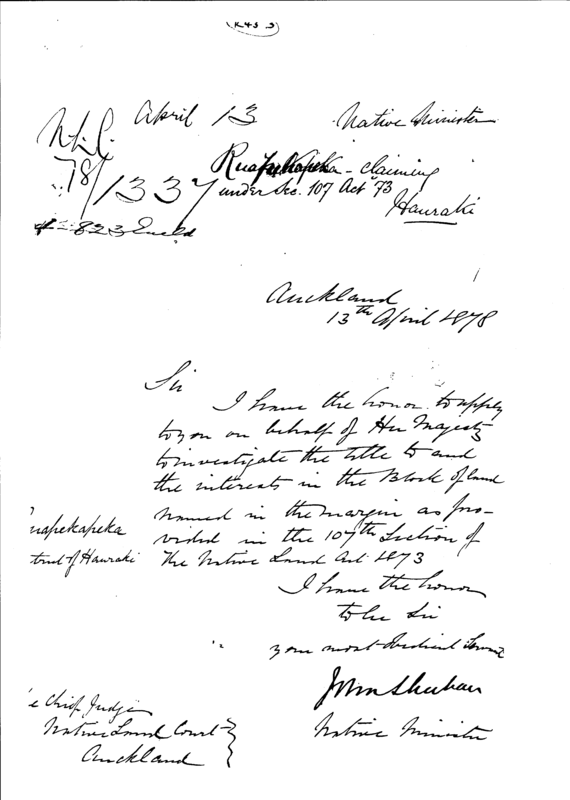 K43
April 13
Native Minister
N.L.C.
78/1337
Ruapekapeka - claiming
under Sec. 107 Act '73
Hauraki
823
Auckland
13th April 1878
Sir
I have the honor to apply
to you on behalf of Her Majesty
to investigate the title to and
the interests in the Block of land
named in the margin as pro-
vided in the 107th Section of
the Native Land Act 1873
uapekapeka
trict of Hauraki
I have the honor
to be Sir
your most obedient Servant
John Sheehan
Native Minister
e Chief Judge
Native Land Court
Auckland